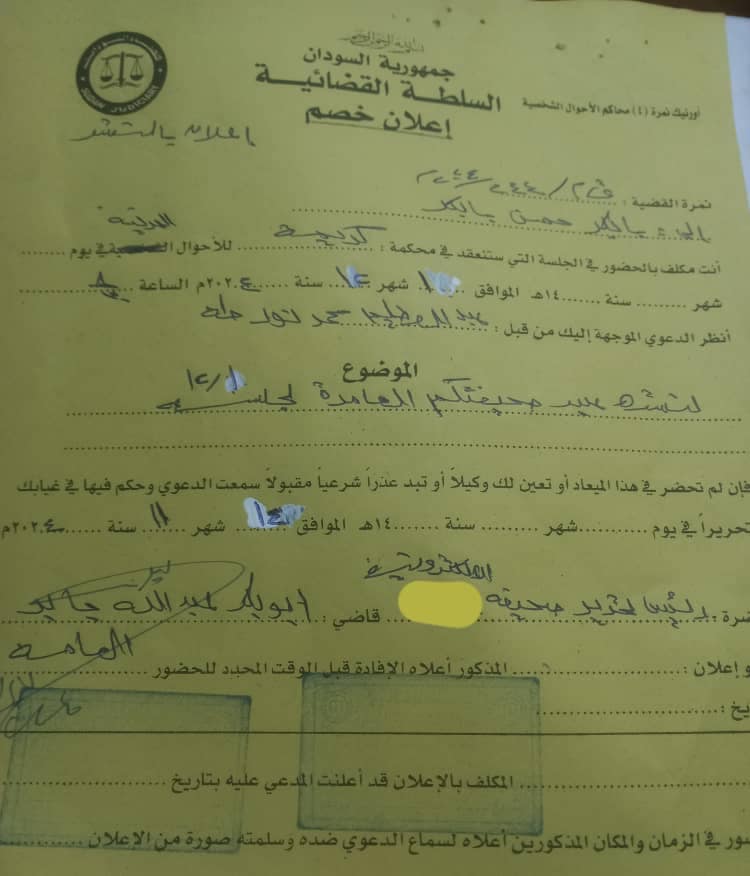 بسم الله الرحمن الرحيم
جمهورية السودان
السلطة القضائية
إعلان خصم
أورنيك نمرة (٤) محاكم الأحوال الشخصية
SUDAN JUDICIARY
اعلان بالنشر
نمرة القضية : ق٢/ /٢٠٢٤م
الي / بابكر حسن بابكر
أنت مكلف بالحضور في الجلسة التي ستنعقد في محكمة : للأحوال في يوم
شهر سنة ١٤هـ الموافق شهر ١٢ سنة ٢٠٢٤م الساعة
أنظر الدعوي الموجهة إليك من قبل : محمد نور
الموضوع
صحيفتكم لجلسة ١٢/١
فإن لم تحضر في هذا الميعاد أو تعين لك وكيلاً أو تبد عذراً شرعياً مقبولاً سمعت الدعوي وحكم فيها في غيابك
تحريراً في يوم شهر سنة ١٤هـ الموافق شهر ١١ سنة ٢٠٢٤م
الالكترونية
ضرة : رئيس تحرير صحيفة قاضي : ابوبكر عبدالله
العامة
و إعلان : المذكور أعلاه الإفادة قبل الوقت المحدد للحضور
يخ :
المكلف بالإعلان قد أعلنت المدعي عليه بتاريخ
ور في الزمان والمكان المذكورين أعلاه لسماع الدعوي ضده وسلمته صورة من الإعلان